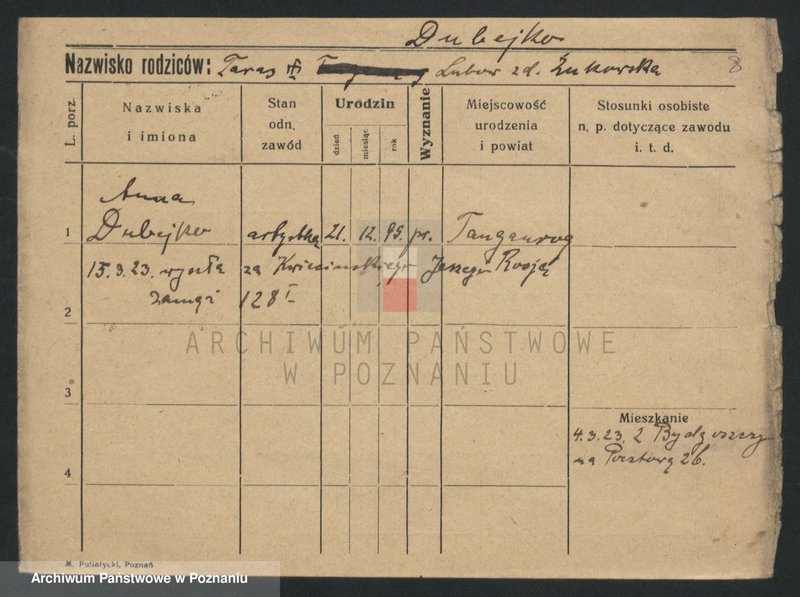 Dubejko
Nazwisko rodziców: Taras Lubow zd. Żukowska 8
L. porz.
Nazwiska
i imiona
Stan
odn.
zawód
Urodzin
dzień
miesiąc
rok
Wyznanie
Miejscowość
urodzenia
i powiat
Stosunki osobiste
n. p. dotyczące zawodu
i. t. d.
Anna
1 Dubejko artystka 21. 12. 95. pr. Tanganrog
15.3.23. wyszła za Kwiecinskiego Jerzego Rosja
zamąż 128 I
2
ARCHIWUM PAŃSTWOWE
W POZNANIU
3
Mieszkanie
4.3.23. z Bydgoszczy
na Pocztową 26.
4
M. Putiatycki, Poznań
Archiwum Państwowe w Poznaniu